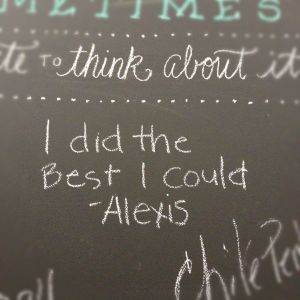 METIMES
ate TO think about it
I did the
Best I could
-Alexis
Chile